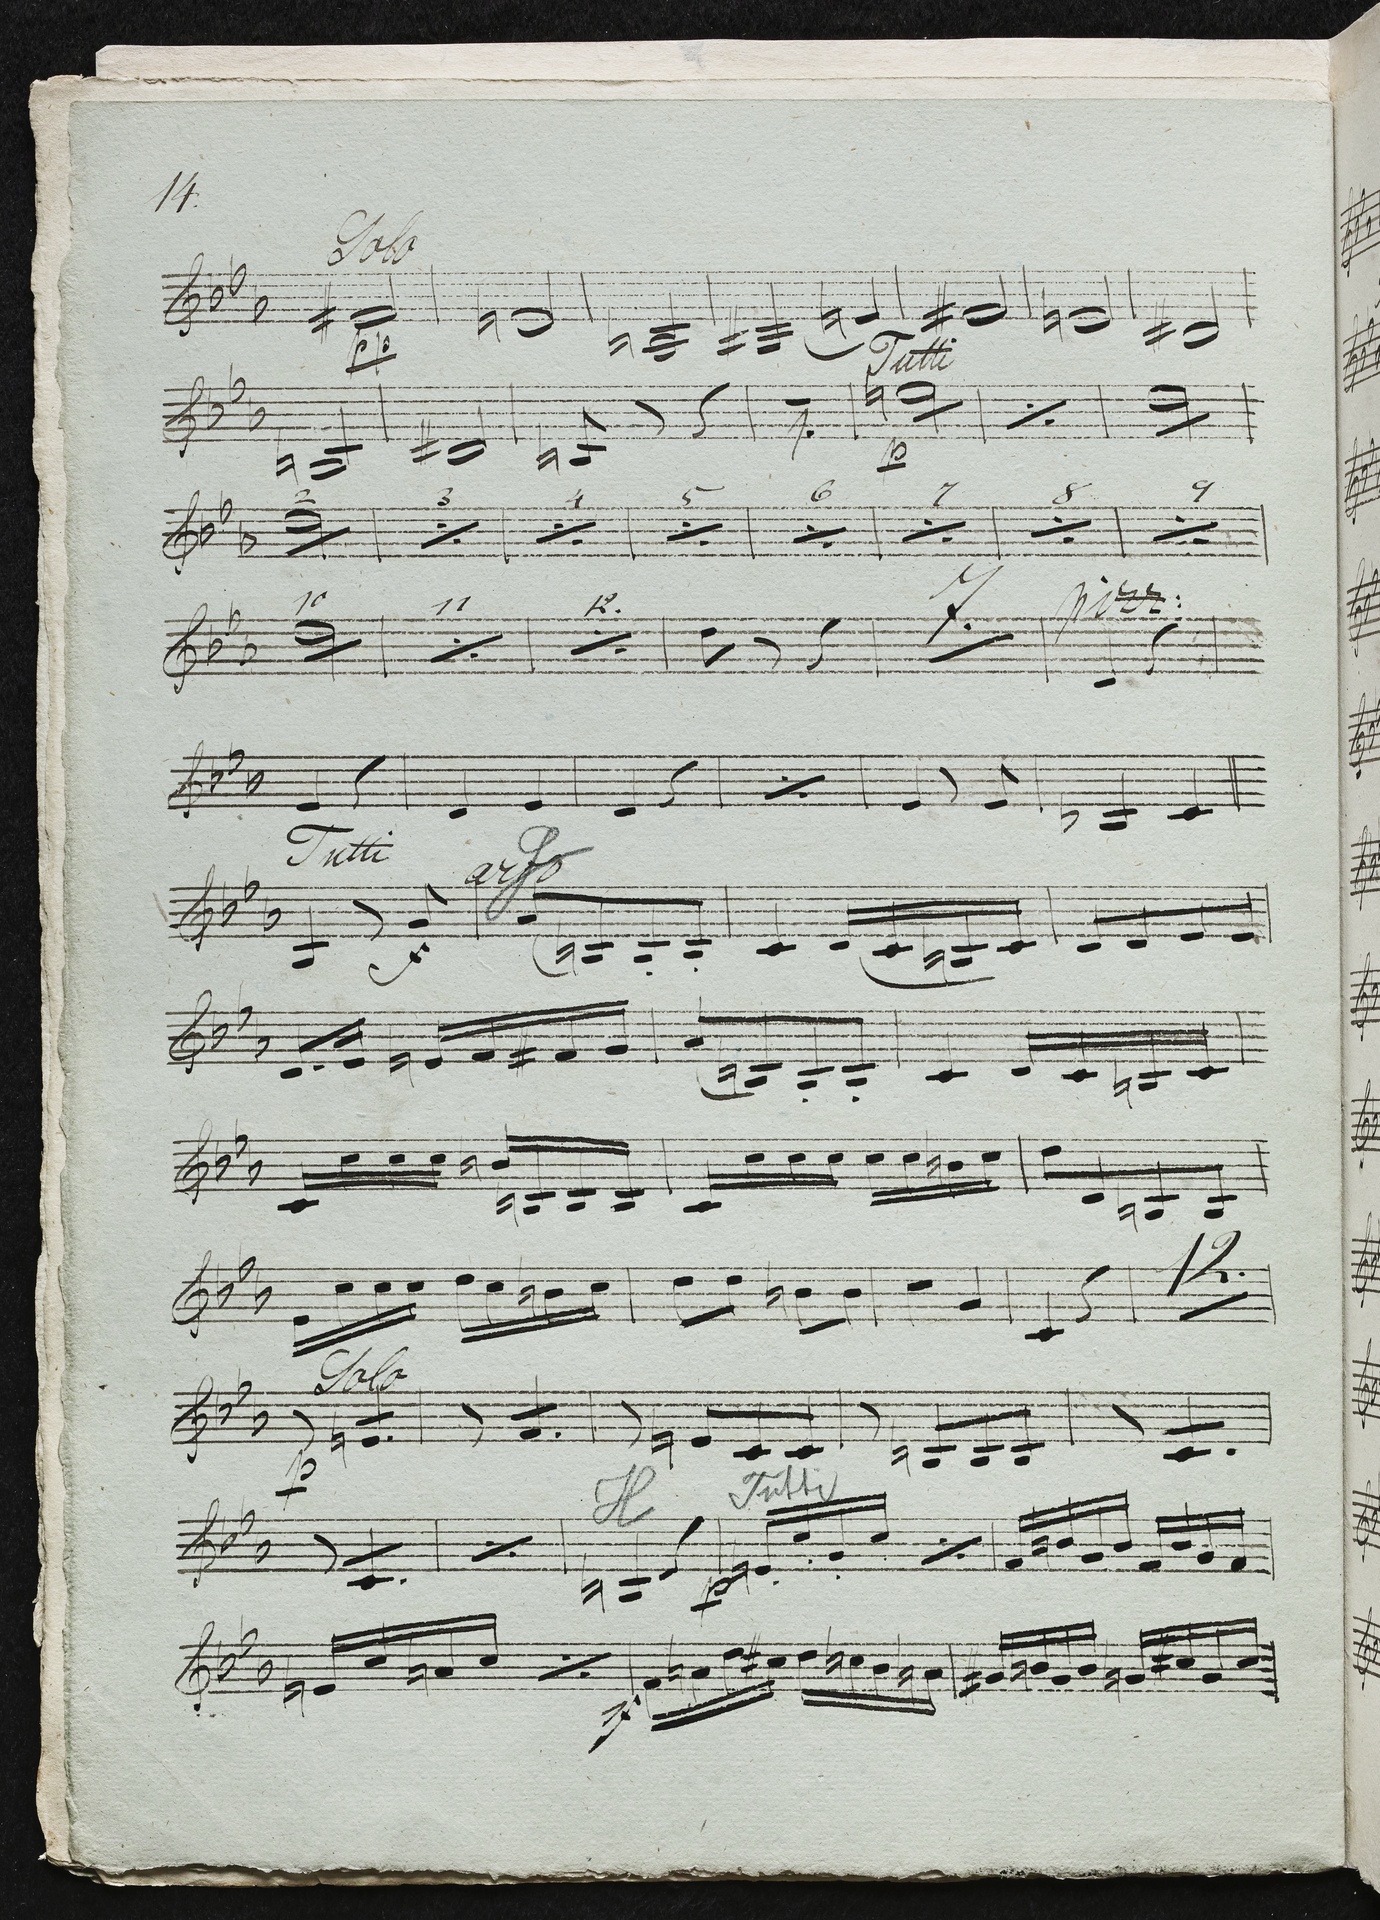 14.
Solo
pp
Tutti
p
2 3 4 5 6 7 8 9
10 11 12.
7. pizz:
Tutti
arco
12.
Solo
p
H Tutti
p